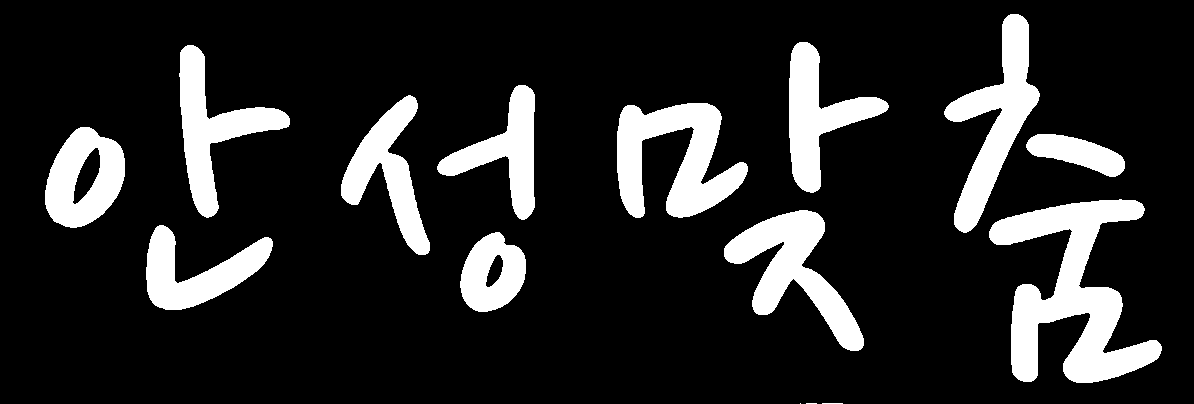 안성맞춤